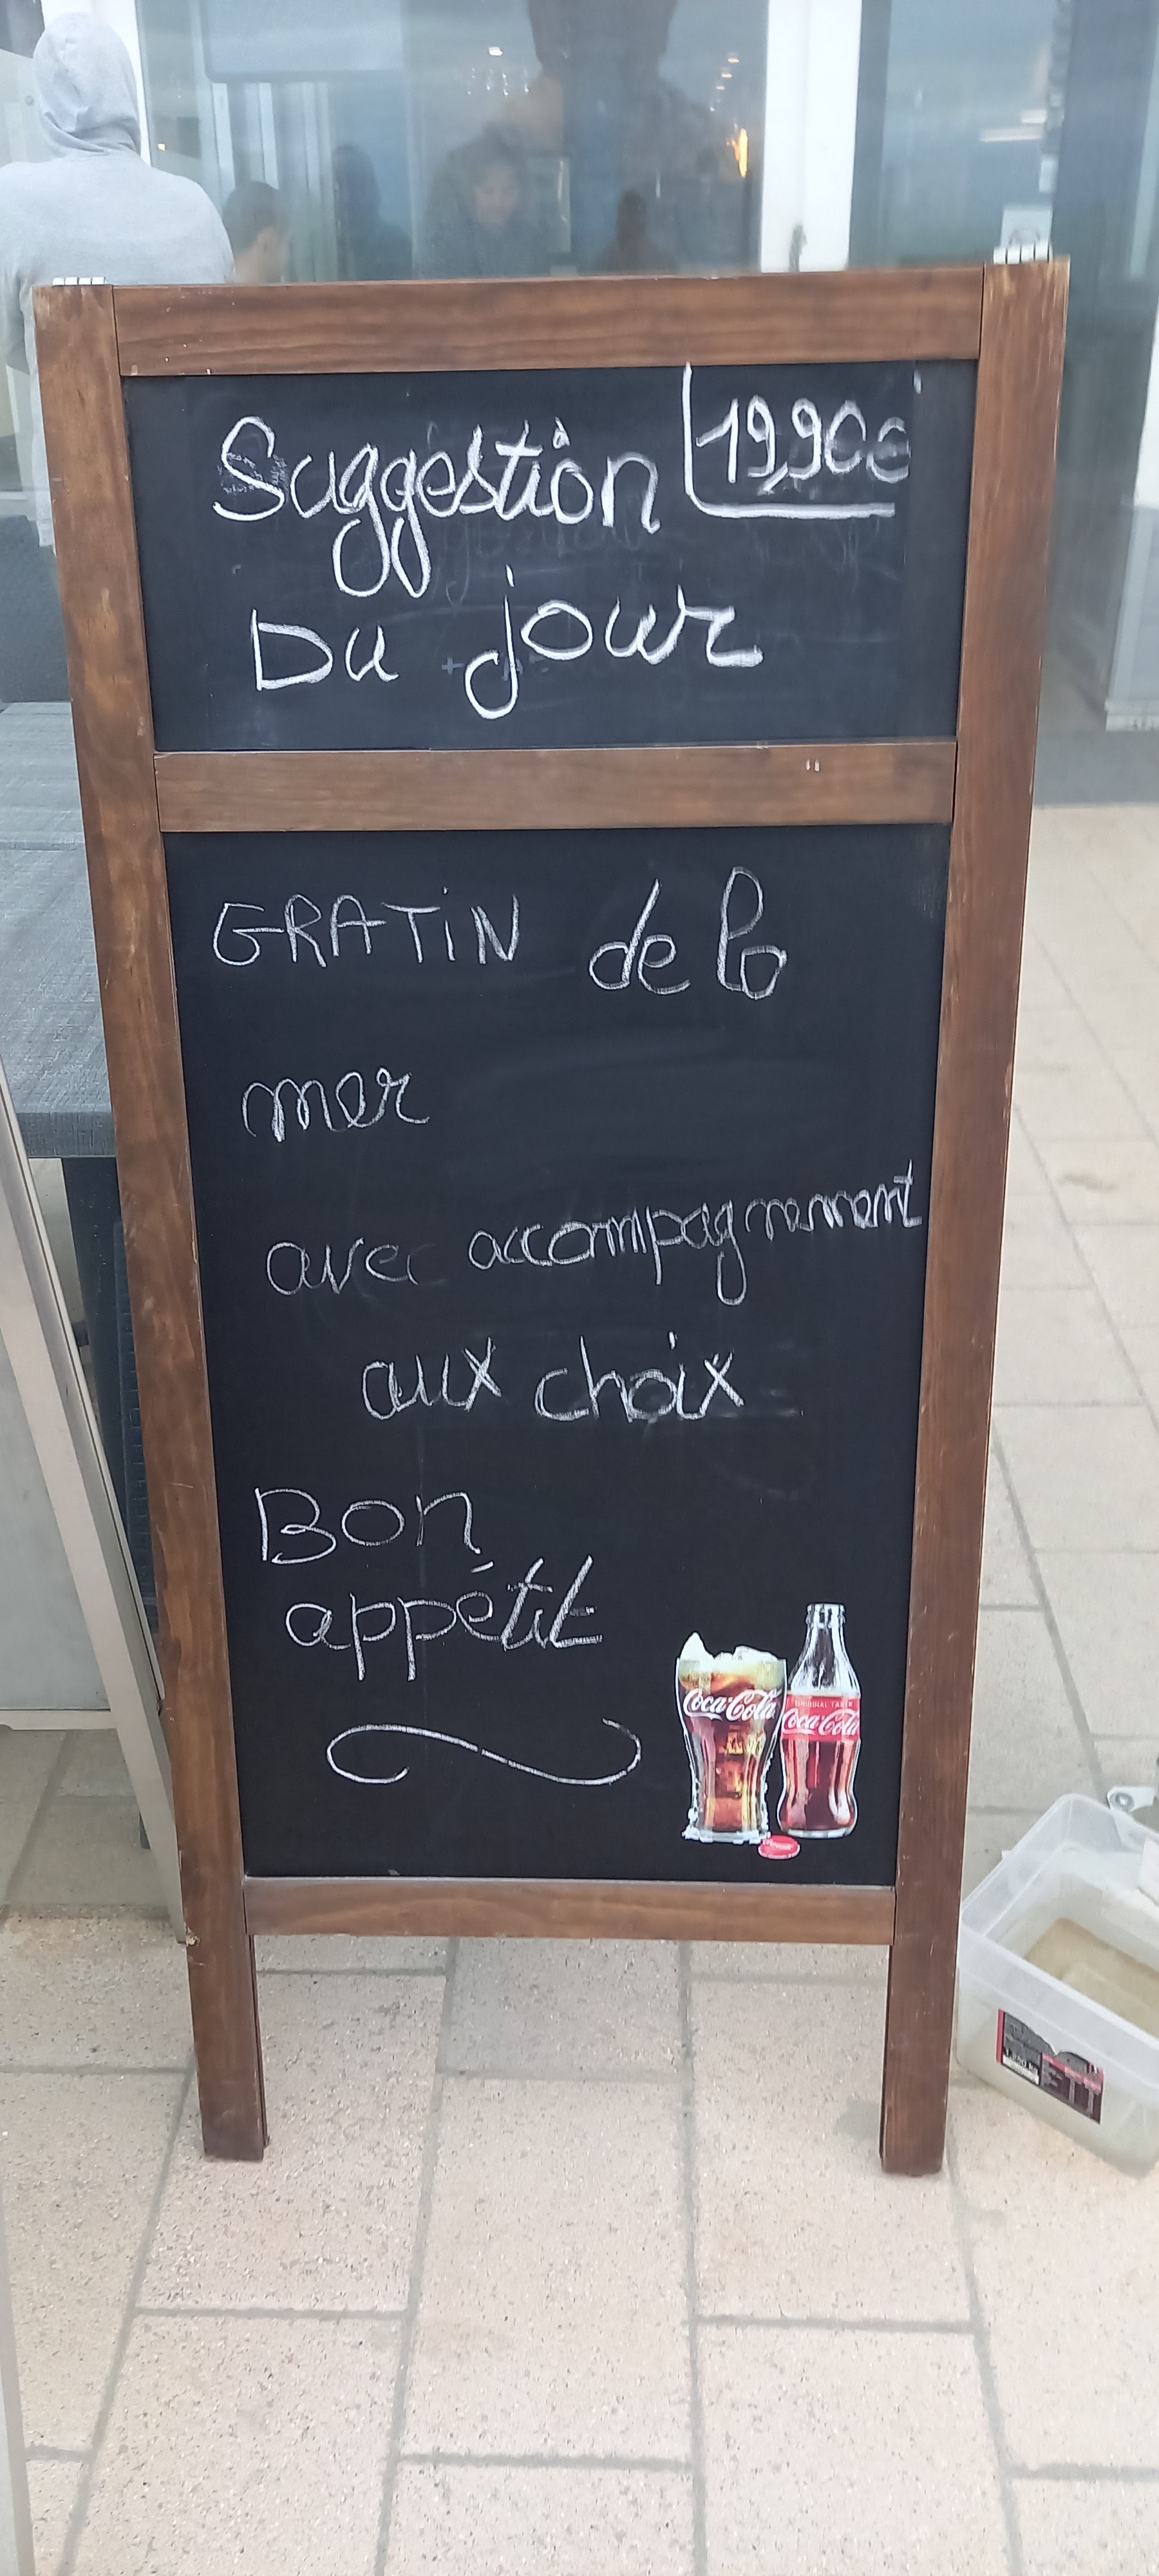 Suggestion
19,90€
Du jour
GRATiN de la
mer
avec accompagnement
aux choix
Bon
appétit
Coca-Cola
ORIGINAL TASTE
Coca-Cola